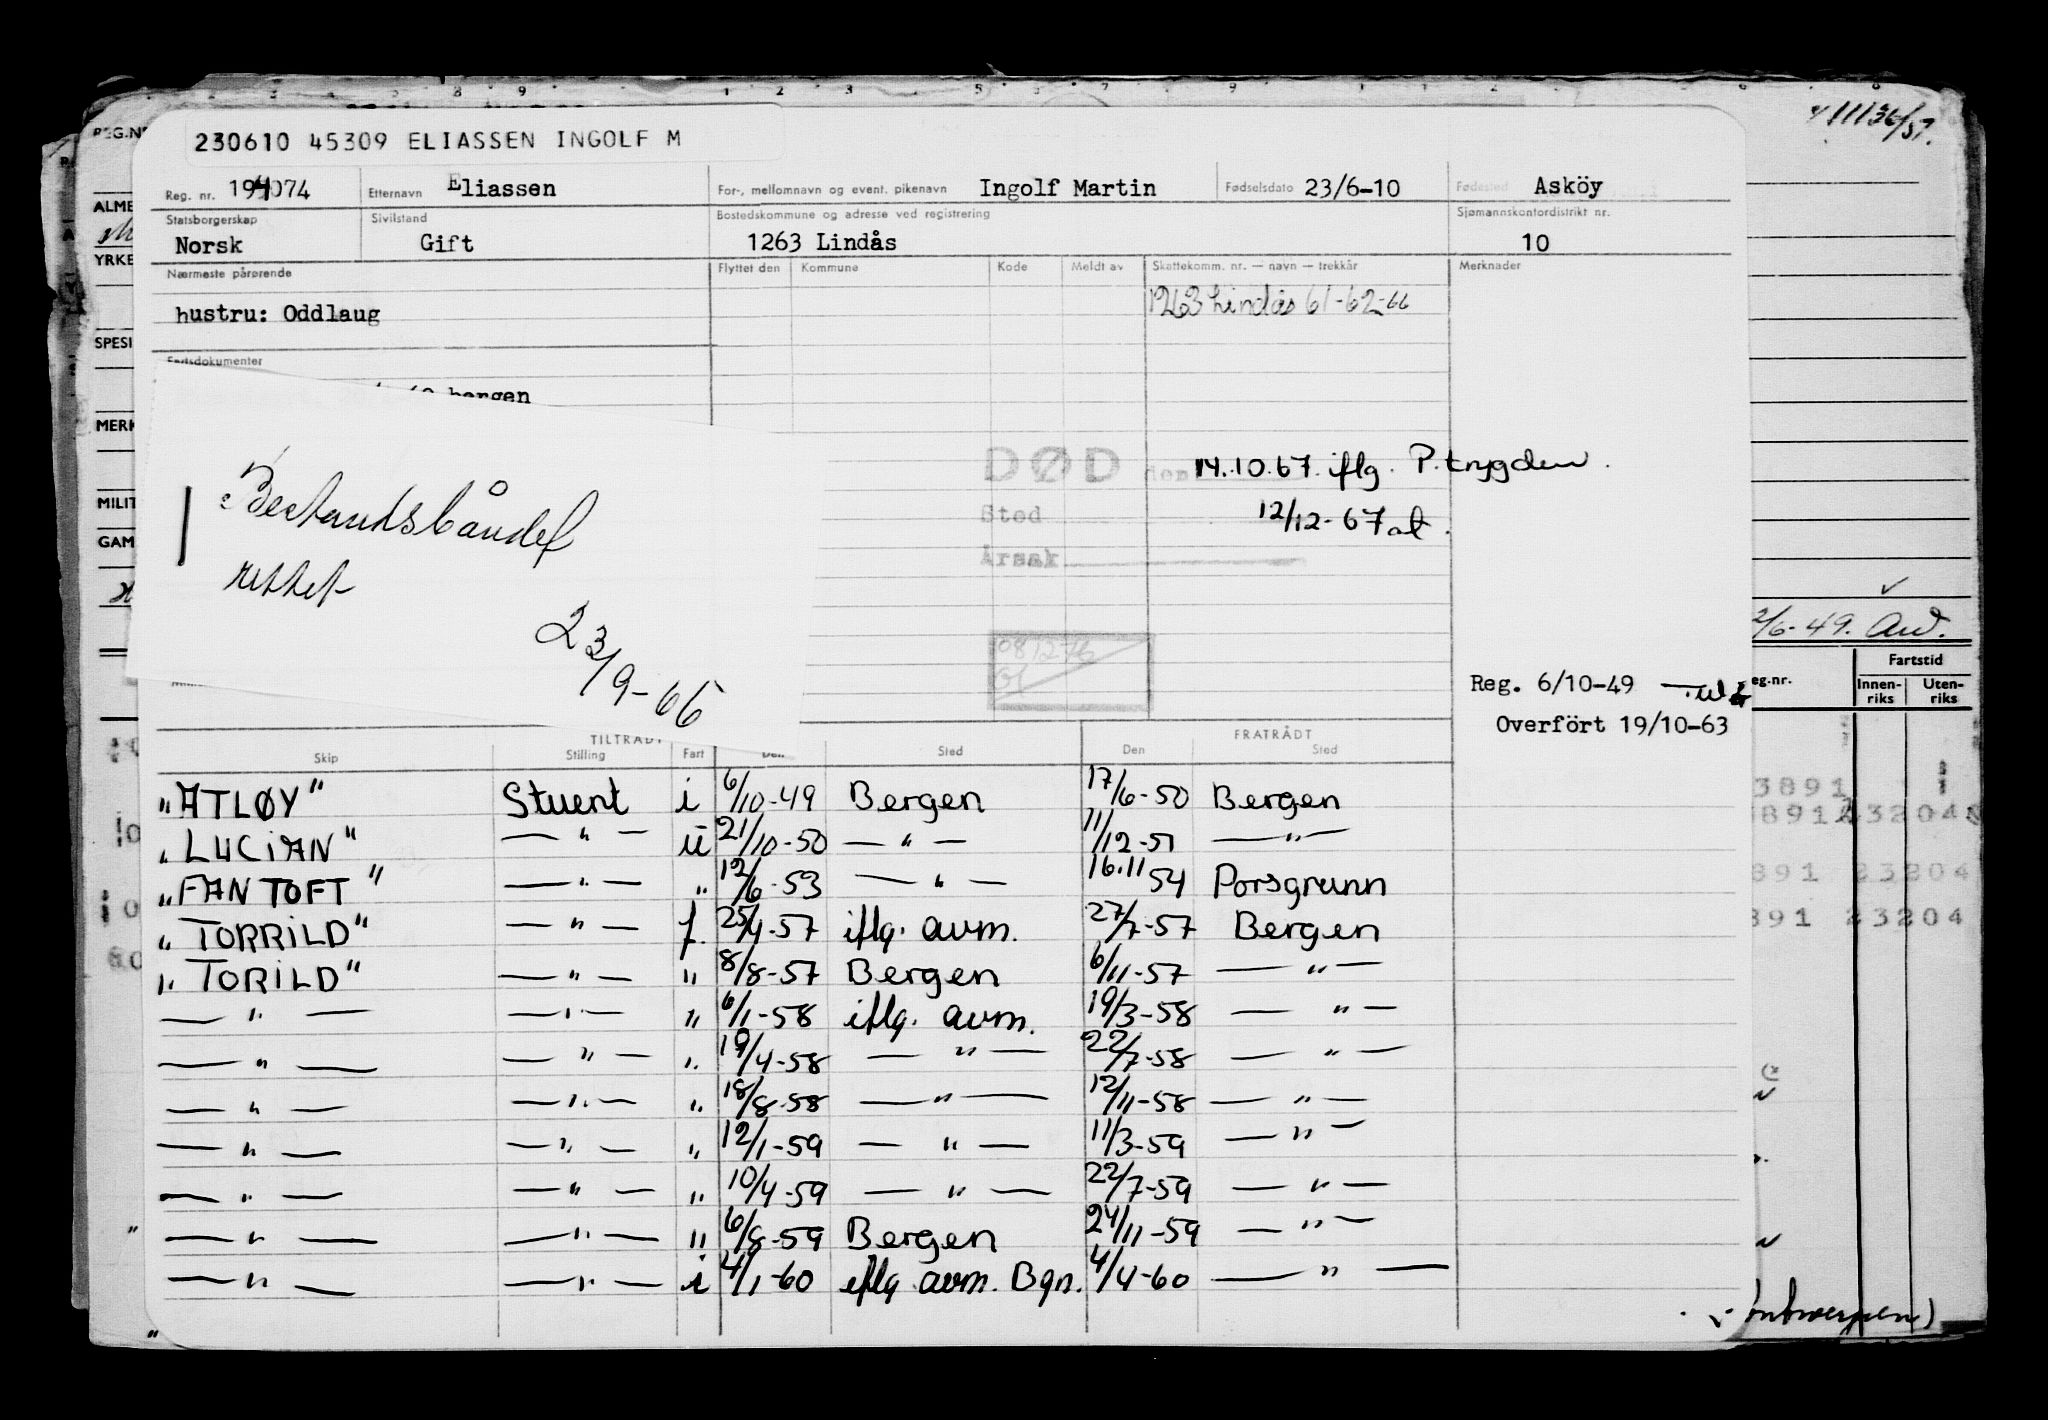 230610 45309 ELIASSEN INGOLF M
Reg. nr. 194074 Etternavn Eliassen For-, mellomnavn og event. pikenavn Ingolf Martin Fødselsdato 23/6-10 Fødested Asköy
Statsborgerskap Norsk Sivilstand Gift Bostedskommune og adresse ved registrering 1263 Lindås Sjømannskontordistrikt nr. 10
Nærmeste pårørende Flyttet den Kommune Kode Meldt av Skattekomm. nr. — navn — trekkår Merknader
hustru: Oddlaug 1263 Lindås 61-62-66
Fartsdokumenter
bergen
DØD den 14.10.67. iflg. P.trygden.
Sted 12/12-67
Årsak
23/9-66
081276
Reg. 6/10-49
Overfört 19/10-63
TILTRÅDT FRATRÅDT
Skip Stilling Fart Den Sted Den Sted
"ATLØY" Stuert i 6/10-49 Bergen 17/6-50 Bergen
"LUCIAN" — " — u 21/10-50 — " — 11/12-51 — " —
"FANTOFT" — " — " 12/6-53 — " — 16.11 54 Porsgrunn
"TORRILD" — " — f. 25/4-57 iflg. avm. 27/7-57 Bergen
"TORILD" — " — " 8/8-57 Bergen 6/11-57 — " —
— " — — " — " 6/1-58 iflg. avm. 19/3-58 — " —
— " — — " — " 19/4-58 — " — 22/7-58 — " —
— " — — " — " 18/8-58 — " — 12/11-58 — " —
— " — — " — " 12/1-59 — " — 11/3-59 — " —
— " — — " — " 10/4-59 — " — 22/7-59 — " —
— " — — " — " 6/8-59 Bergen 24/11-59 — " —
— " — — " — i 4/1-60 iflg avm. Bgn. 4/4-60 — " —
REG.NR
ALME
YRKE
SPESI
MERK
MILIT
GAM
2/6-49.
Fartstid
eg.nr. Innen-riks Uten-riks
3891
891 23204
891 23204
891 23204